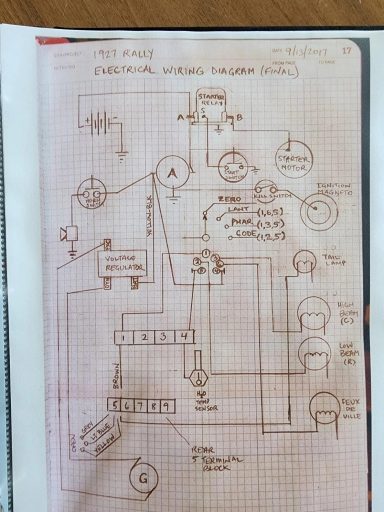 1927 RALLY
DATE 9/13/2017
17
ELECTRICAL WIRING DIAGRAM (FINAL)
STARTER
RELAY
A
S
B
+
-
A
STARTER
MOTOR
KILL SWITCH
IGNITION
MAGNETO
HORN
YELLOW-BLK
ZERO
LANT (1,6,5)
PHAR (1,3,5)
CODE (1,2,5)
VOLTAGE
REGULATOR
TAIL
LAMP
HIGH
BEAM
(C)
LOW
BEAM
(R)
1 2 3 4
BROWN
H2O
TEMP
SENSOR
5 6 7 8 9
DEUX
DE
VILLE
GREY
LT BLUE
YELLOW
REAR
5 TERMINAL
BLOCK
G